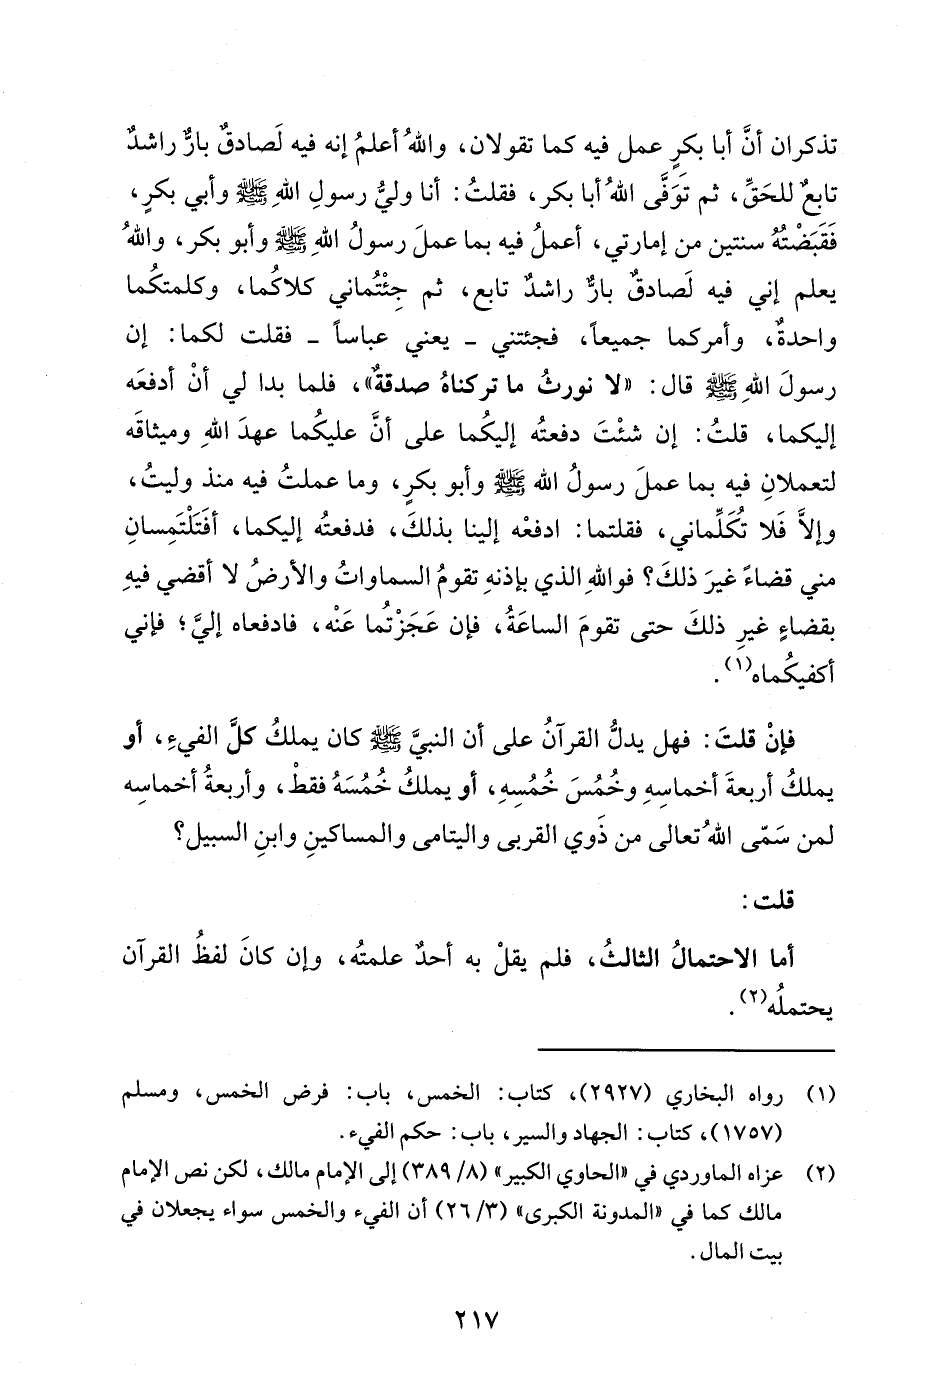 تذكران أنَّ أبا بكرٍ عمل فيه كما تقولان، واللهُ أعلمُ إنه فيه لَصادقٌ بارٌّ راشدٌ
تابعٌ للحَقِّ، ثم تَوَفَّى اللهُ أبا بكر، فقلتُ: أنا وليُّ رسولِ اللهِ ﷺ وأبي بكرٍ،
فَقَبَضْتُهُ سنتين من إمارتي، أعملُ فيه بما عملَ رسولُ اللهِ ﷺ وأبو بكر، واللهُ
يعلم إني فيه لَصادقٌ بارٌّ راشدٌ تابع، ثم جِئْتُماني كلاكُما، وكلمتكُما
واحدةٌ، وأمركما جميعاً، فجئتني ـ يعني عباساً ـ فقلت لكما: إن
رسولَ اللهِ ﷺ قال: «لا نورثُ ما تركناهُ صدقةٌ»، فلما بدا لي أنْ أدفعَه
إليكما، قلتُ: إن شئْتَ دفعتُه إليكُما على أنَّ عليكُما عهدَ اللهِ وميثاقَه
لتعملانِ فيه بما عملَ رسولُ الله ﷺ وأبو بكرٍ، وما عملتُ فيه منذ وليتُ،
وإلاَّ فَلا تُكَلِّماني، فقلتما: ادفعْه إلينا بذلكَ، فدفعتُه إليكما، أفَتَلْتَمِسانِ
مني قضاءً غيرَ ذلكَ؟ فواللهِ الذي بإذنهِ تقومُ السماواتُ والأرضُ لا أقضي فيهِ
بقضاءٍ غيرِ ذلكَ حتى تقومَ الساعَةُ، فإن عَجَزْتُما عَنْه، فادفعاه إليَّ؛ فإني
أكفيكُماه(١).
فإنْ قلتَ: فهل يدلُّ القرآنُ على أن النبيَّ ﷺ كان يملكُ كلَّ الفيءِ، أو
يملكُ أربعةَ أخماسِهِ وخُمُسَ خُمُسِهِ، أو يملكُ خُمُسَهُ فقطْ، وأربعةُ أخماسِه
لمن سَمّى اللهُ تعالى من ذَوي القربى واليتامى والمساكينِ وابنِ السبيل؟
قلت:
أما الاحتمالُ الثالثُ، فلم يقلْ به أحدٌ علمتُه، وإن كانَ لفظُ القرآن
يحتملُه(٢).
(١) رواه البخاري (٢٩٢٧)، كتاب: الخمس، باب: فرض الخمس، ومسلم
(١٧٥٧)، كتاب: الجهاد والسير، باب: حكم الفيء.
(٢) عزاه الماوردي في «الحاوي الكبير» (٨/ ٣٨٩) إلى الإمام مالك، لكن نص الإمام
مالك كما في «المدونة الكبرى» (٣/ ٢٦) أن الفيء والخمس سواء يجعلان في
بيت المال.
٢١٧